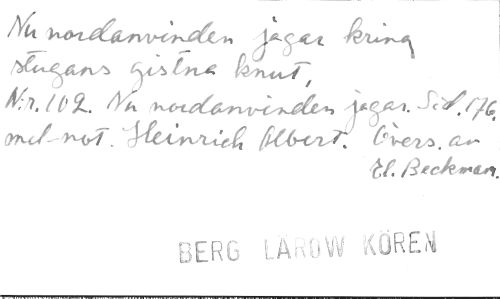 Nu nordanvinden jagar kring
stugans gistna knut,
N:r. 102. Nu nordanvinden jagar. Sid. 176.
med not. Heinrich Albert. Övers. av
El. Beckman.
BERG LAROW KÖREN